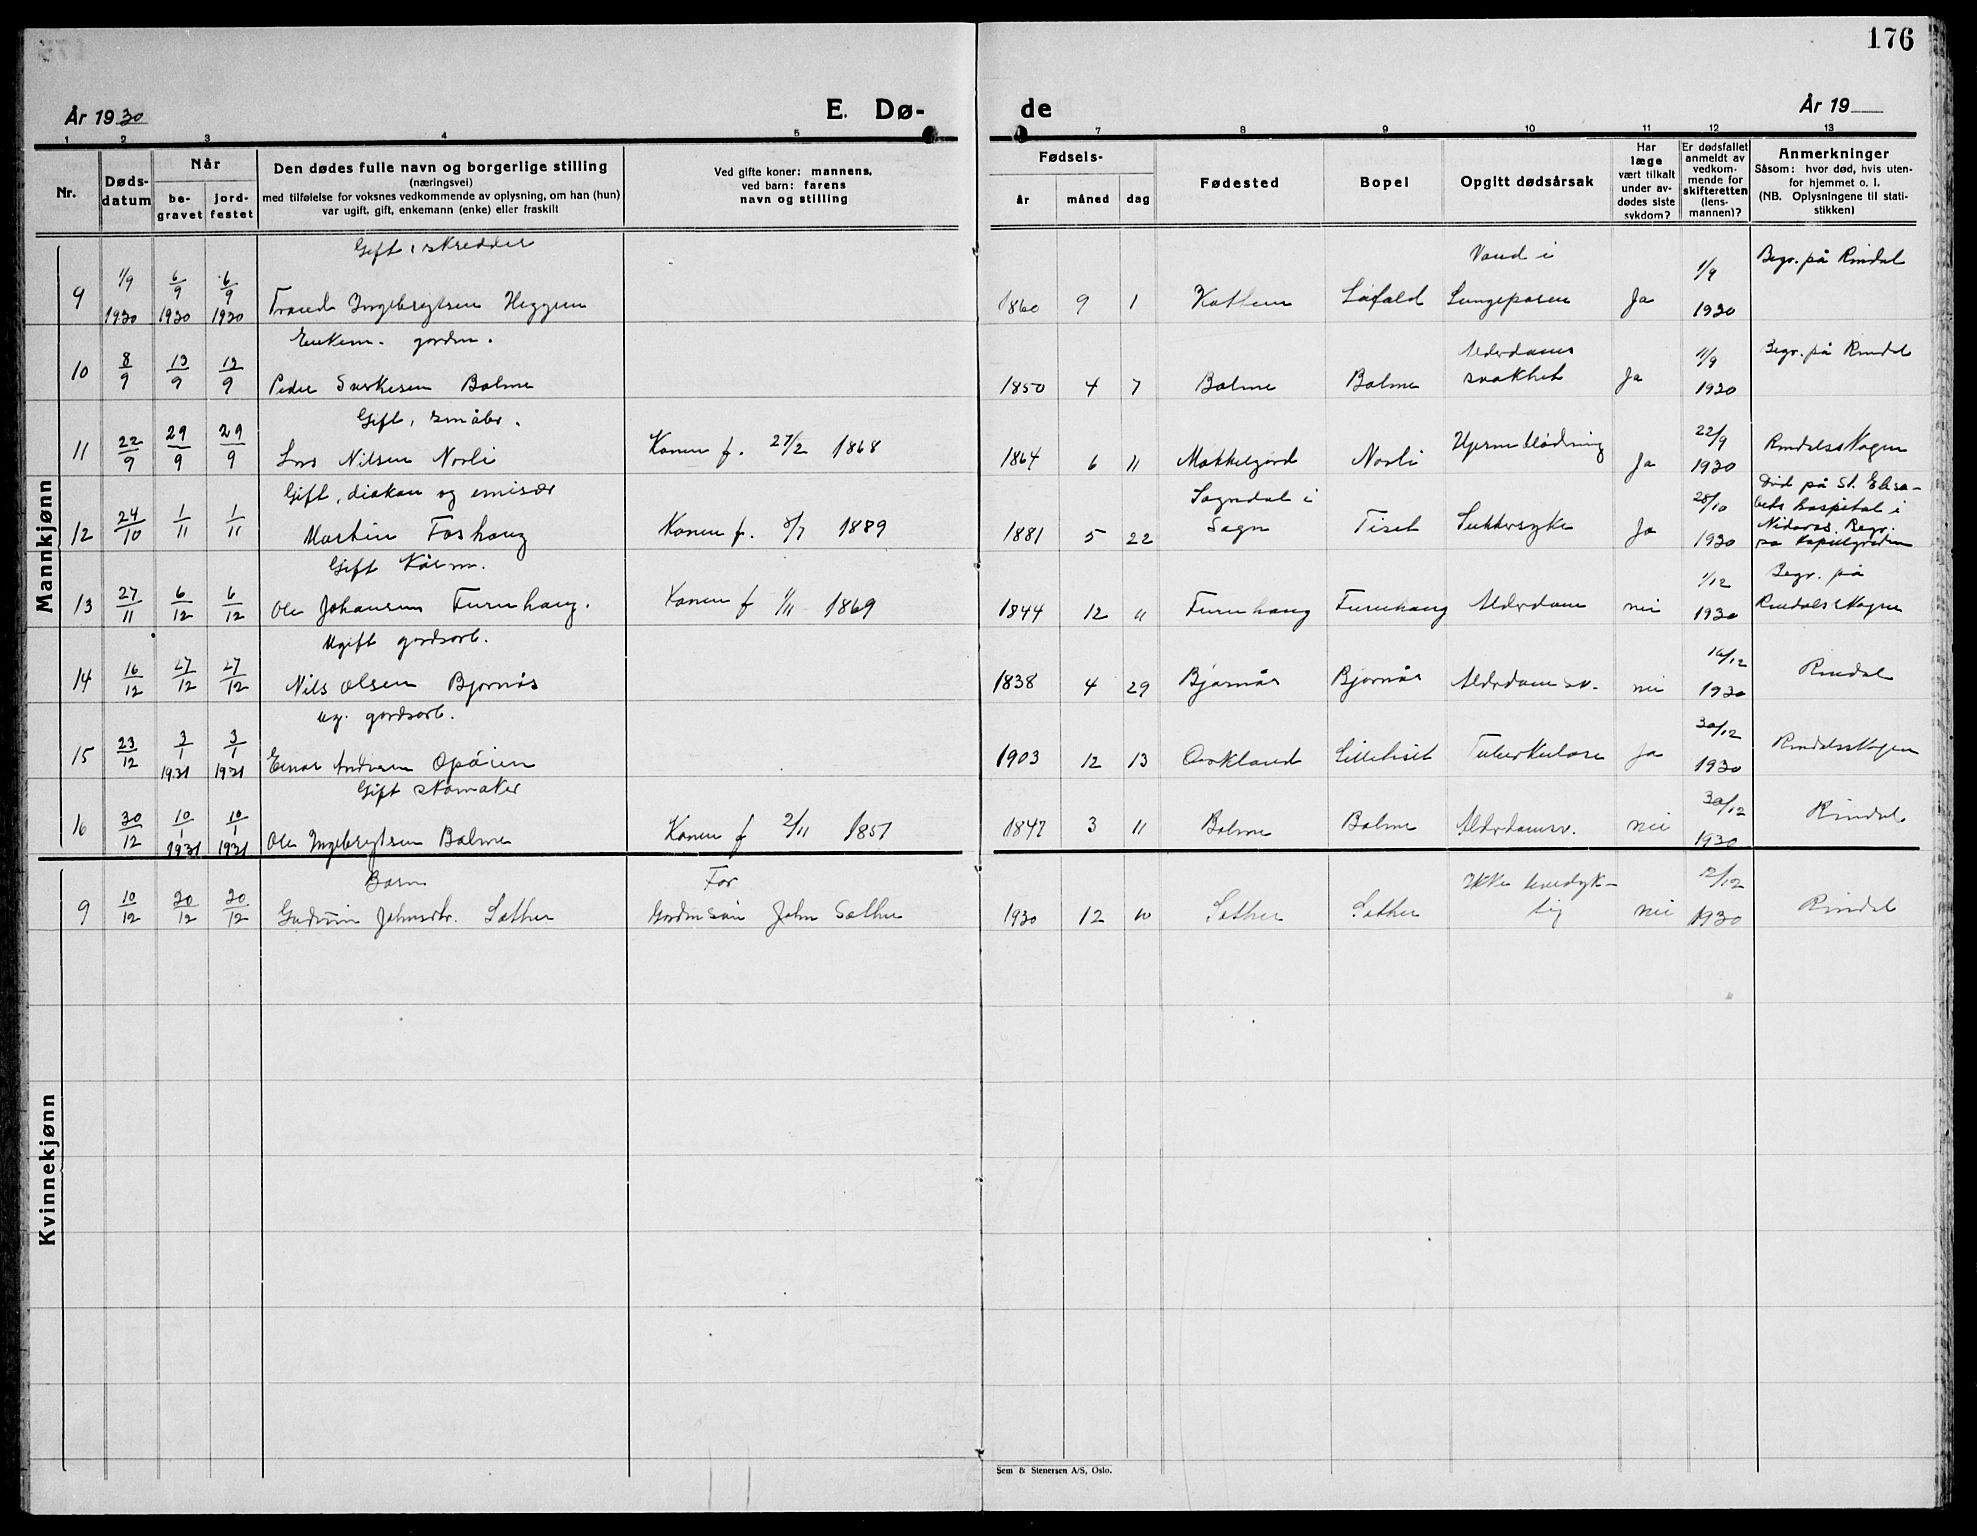 176
År 1930
E. Dø-
de
År 19
1 2 3 4 5 7 8 9 10 11 12 13
Nr.
Døds-
datum
Når
be-
gravet
jord-
festet
Den dødes fulle navn og borgerlige stilling
(næringsvei)
med tilføielse for voksnes vedkommende av oplysning, om han (hun)
var ugift, gift, enkemann (enke) eller fraskilt
Ved gifte koner: mannens,
ved barn: farens
navn og stilling
Fødsels-
år måned dag
Fødested
Bopel
Opgitt dødsårsak
Har
læge
vært tilkalt
under av-
dødes siste
sykdom?
Er dødsfallet
anmeldt av
vedkom-
mende for
skifteretten
(lens-
mannen)?
Anmerkninger
Såsom: hvor død, hvis uten-
for hjemmet o. l.
(NB. Oplysningene til stati-
stikken)
Mannkjønn
Gift, skredder
9 1/9 1930 6/9 1930 6/9 1930 Trond Ingebrigtsen Heggem 1860 9 1 Kattem Løfald Vand i Lungeposen Ja 1/9 1930 Begr. på Rindal
Enkem. gordm.
10 8/9 13/9 13/9 Peder Balme 1850 4 7 Bolme Bolme Alderdoms svakhet Ja 11/9 1930 Begr. på Rindal
Gift, småbr.
11 22/9 29/9 29/9 Lars Nilsen Norli Konen f. 27/2 1868 1864 6 11 Norli Hjerneblødning Ja 22/9 1930 Rindalsskogen
Gift, diakon og emisær
12 24/10 1/11 1/11 Martin Foshaug Konen f. 8/7 1889 1881 5 22 Sogndal i Sogn Tiset Sukkersyke Ja 28/10 1930 Død på St. Elisa-
beds hospital i
Nidaros. Begr.
Gift Kårm.
13 27/11 6/12 6/12 Ole Johansen Furuhaug. Konen f 1/11 1869 1844 12 11 Furuhaug Furuhaug Alderdom nei 1/12 1930 Begr. på
Rindalsskogen
Ugift gordsarb.
14 16/12 27/12 27/12 Nils Olsen Bjørnås 1838 4 29 Bjørnås Bjørnås Alderdomsv. nei 16/12 1930 Rindal
Ug. gordsarb.
15 23/12 3/1 1931 3/1 1931 Einar Andersen Opøien 1903 12 13 Orkland Lilletiset Tuberkulose Ja 30/12 1930 Rindalsskogen
Gift skomaker
16 30/12 10/1 1931 10/1 1931 Ole Ingebrigtsen Bolme Konen f 2/11 1851 1847 3 11 Bolme Bolme Alderdomsv. nei 30/12 1930 Rindal
Kvinnekjønn
Barn Far
9 10/12 20/12 20/12 Gudrun Johnsdtr. Sæther Gordm søn John Sæther 1930 12 10 Sæther Sæther Ikke levedyk-
tig nei 12/12 1930 Rindal
Sem & Stenersen A/S, Oslo.